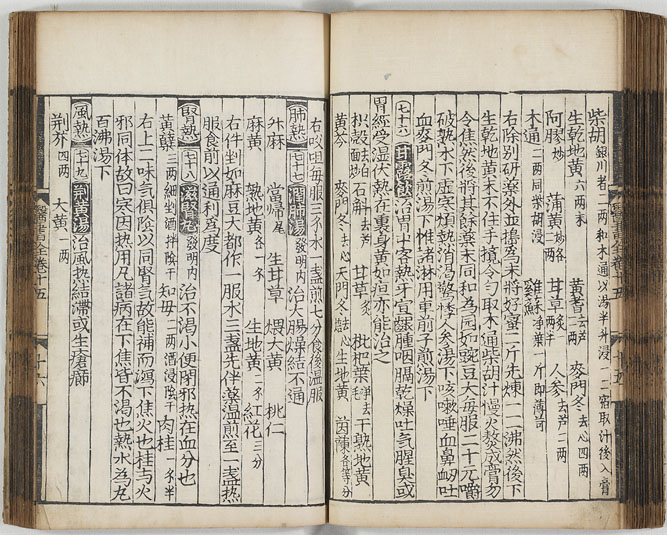 柴胡銀川者二兩和木通以湯半斗浸一二宿取汁後入膏
生乾地黃六兩末 黃芪一兩去芦 麥門冬去心四兩
阿膠炒三兩 蒲黃炒各二兩 甘草炙二兩半 人參去芦二兩
木通二兩同柴胡浸 雞蘇淨葉一斤即薄荷
右除別研藥外並搗爲末將好蜜二斤先煉一二沸然後下
生乾地黃末不住手攪令勻取木通柴胡汁慢火熬成膏勿
令焦然後將其餘藥末同和爲圓如豌豆大每服二十元嚼
破熱水下虛寒煩熱消渴驚悸人參湯下咳嗽唾血鼻衄吐
血麥門冬煎湯下惟諸淋用車前子煎湯下
七十六 甘露飮治胃中客熱牙宣齒腫咽膈乾燥吐氣腥臭或
胃經受濕伏熱在裏身黃如疸亦能治之
枳殼麩炒 石斛去芦 甘草炙 枇杷葉去毛 干熟地黃
黃芩 麥門冬去心 天門冬去心 生地黃 茵蔯各等分
醫書全卷十五 十五
右㕮咀每服三錢水一盞煎七分食後溫服
肺熱 七十七 潤肺湯發明內治大腸燥結不通
升麻 當歸尾 生甘草 煨大黃 桃仁
麻黃 熟地黃各一錢 生地黃二錢 紅花三分
右件剉如麻豆大都作一服水三盞先伴藥溫煎至一盞熱
服食前以通利爲度
腎熱 七十八 滋腎丸發明內治不渴小便閉邪熱在血分也
黃蘗三兩細剉酒拌陰干 知母二兩酒浸陰干 肉桂一錢半
右上二味氣俱陰以同腎氣故能補而瀉下焦火也桂与火
邪同体故曰寒因熱用凡諸病在下焦皆不渴也熱水爲丸
百沸湯下
風熱 七十九 荆黃湯治風熱結滯或生瘡癤
荆芥四兩 大黃一兩
醫書全卷十五 十六